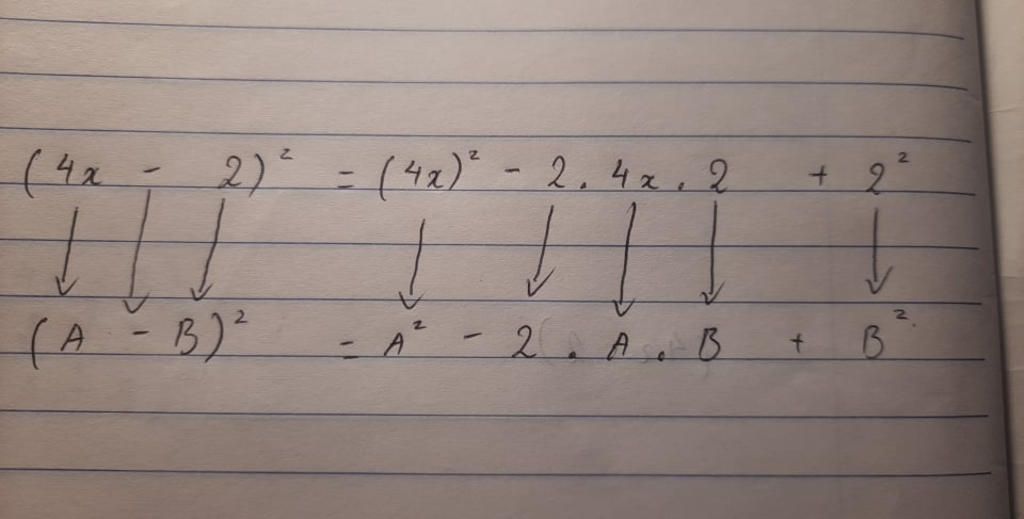 (4x - 2)² = (4x)² - 2 . 4x . 2 + 2²
(A - B)² = A² - 2 . A . B + B²